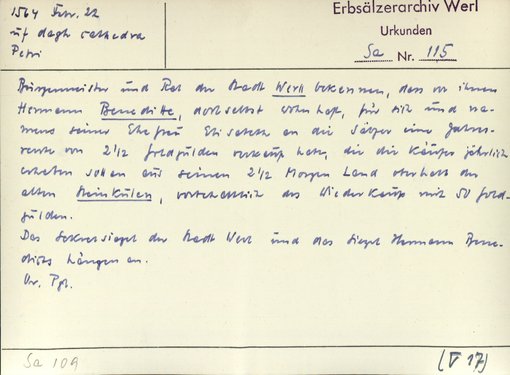 1564 Febr. 22
uf dagh cathedra
Petri
Erbsälzerarchiv Werl
Urkunden
Sa Nr. 115
Bürgermeister und Rat der Stadt Werl bekennen, dass vor ihnen
Hermann Beneditte, dortselbst wohnhaft, für sich und na-
mens seiner Ehefrau Elisabeth an die Sälzer eine Jahres-
rente von 2 1/2 Goldgulden verkauft hat, die die Käufer jährlich
erheben sollen aus seinen 2 1/2 Morgen Land oberhalb der
alten Steinkulen, vorbehaltlich des Wiederkaufs mit 50 Gold-
gulden.
Das Sekretsiegel der Stadt Werl und das Siegel Hermann Bene-
dicts hängen an.
Or. Pgt.
Sa 109
(V 17)